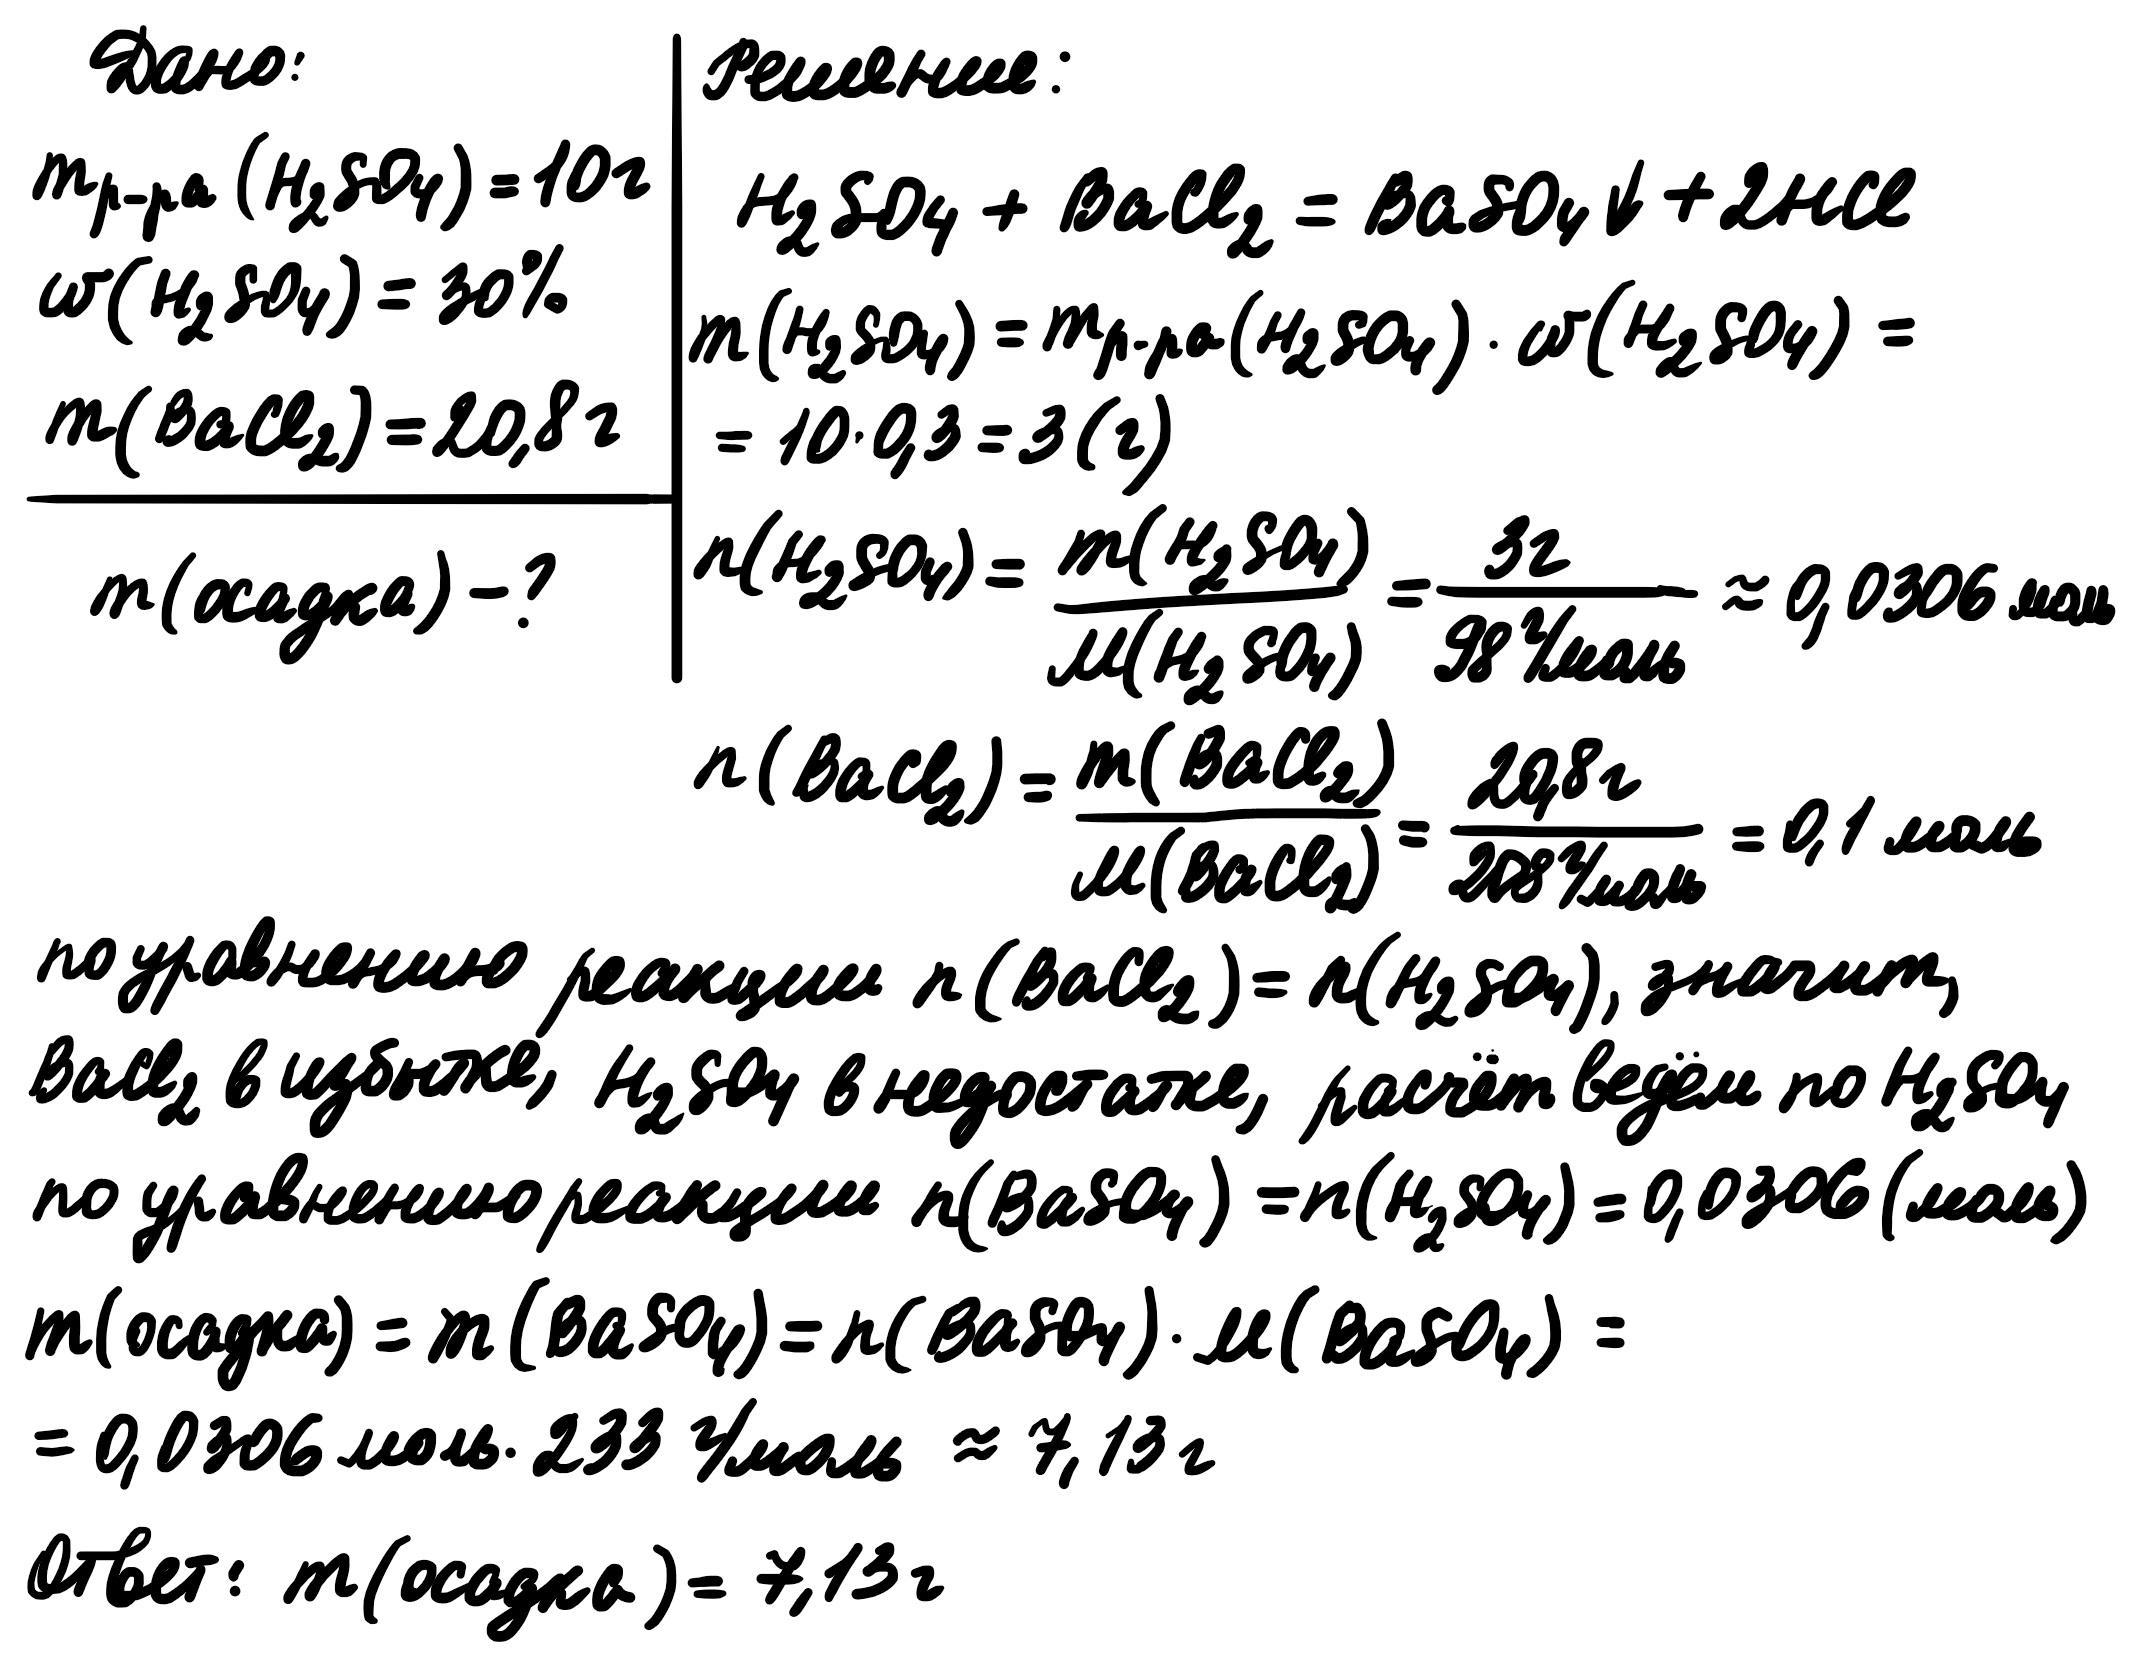 Дано:
m р-ра (H₂SO₄) = 10 г
w(H₂SO₄) = 30%
m(BaCl₂) = 20,8 г
m(осадка) - ?
Решение:
H₂SO₄ + BaCl₂ = BaSO₄↓ + 2HCl
m(H₂SO₄) = m р-ра(H₂SO₄) · w(H₂SO₄) =
= 10·0,3 = 3 (г)
n(H₂SO₄) = m(H₂SO₄)/M(H₂SO₄) = 3г/98 г/моль ≈ 0,0306 моль
n(BaCl₂) = m(BaCl₂)/M(BaCl₂) = 20,8 г/208 г/моль = 0,1 моль
по уравнению реакции n(BaCl₂) = n(H₂SO₄), значит,
BaCl₂ в избытке, H₂SO₄ в недостатке, расчёт ведём по H₂SO₄
по уравнению реакции n(BaSO₄) = n(H₂SO₄) = 0,0306 (моль)
m(осадка) = m(BaSO₄) = n(BaSO₄) · M(BaSO₄) =
= 0,0306 моль · 233 г/моль ≈ 7,13 г
Ответ: m(осадка) = 7,13 г